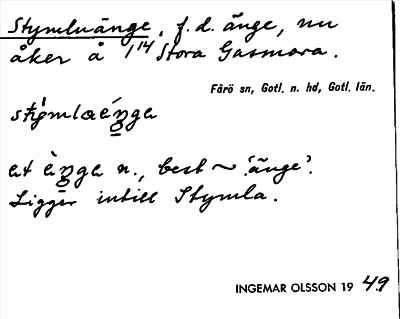 Stymluänge, f.d. änge, nu
åker å 1/14 Stora Gasmora.
Fårö sn, Gotl. n. hd, Gotl. län.
et n., best ~ 'änge'.
Ligger intill Stymla.
INGEMAR OLSSON 1949